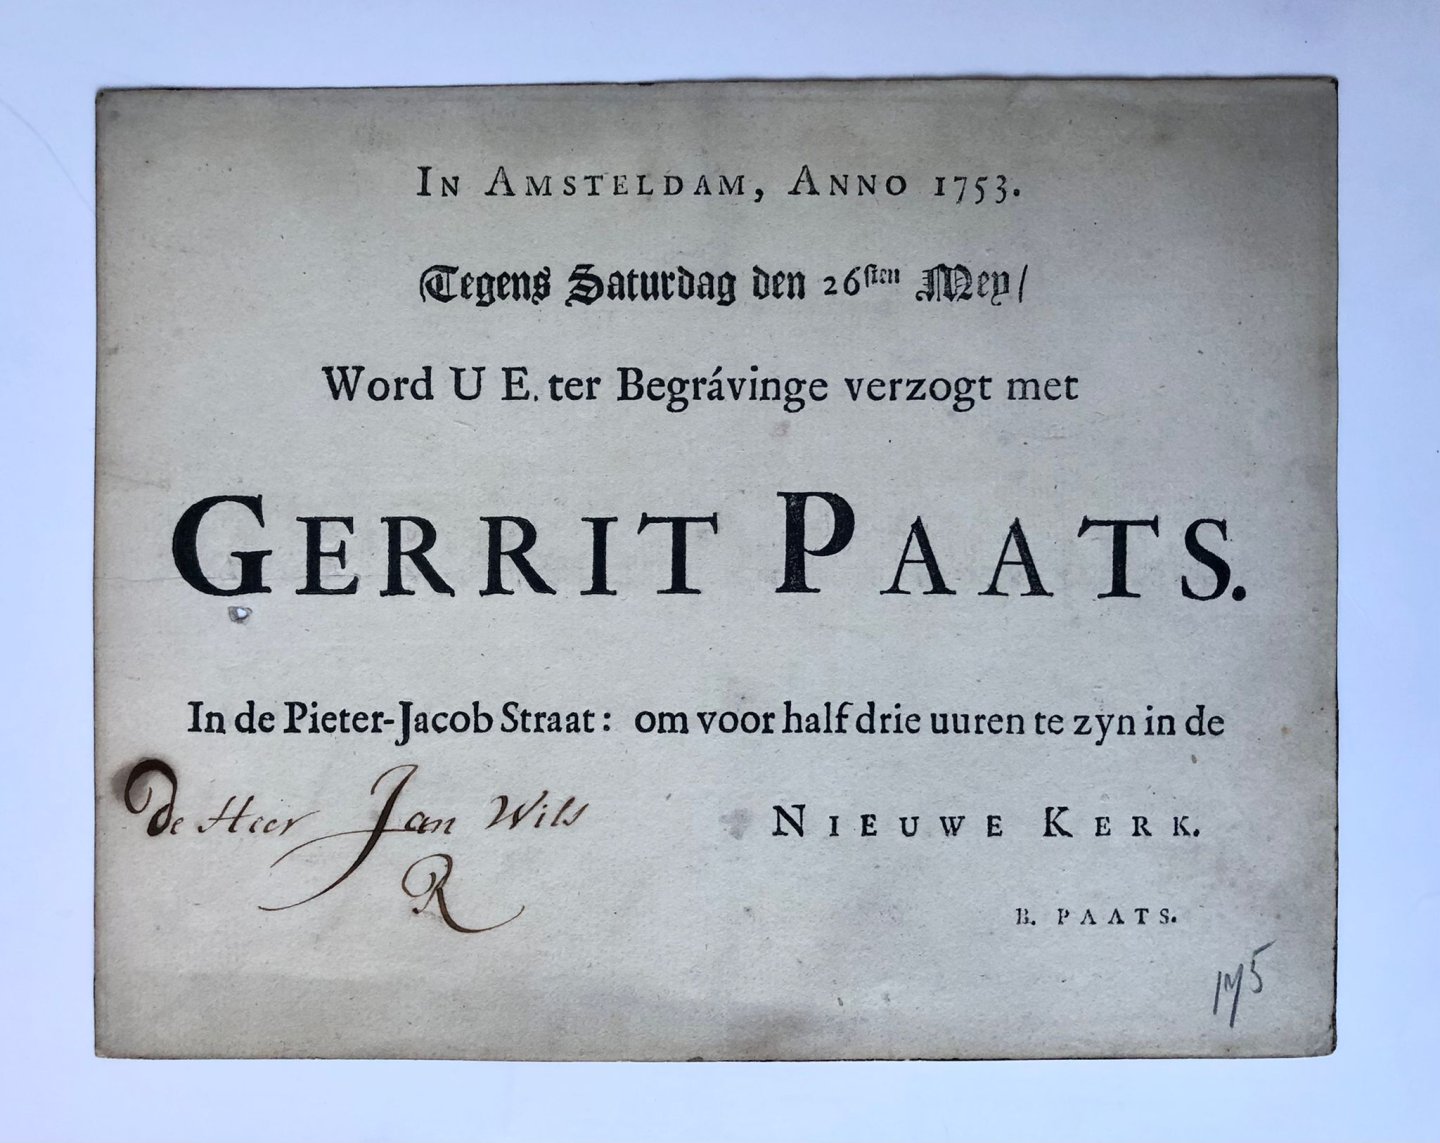 In Amsteldam, Anno 1753.
Tegens Saturdag den 26sten Mey/
Word U E. ter Begrávinge verzogt met
GERRIT PAATS.
In de Pieter-Jacob Straat: om voor half drie uuren te zyn in de
De Heer Jan Wils
NIEUWE KERK.
R
B. PAATS.